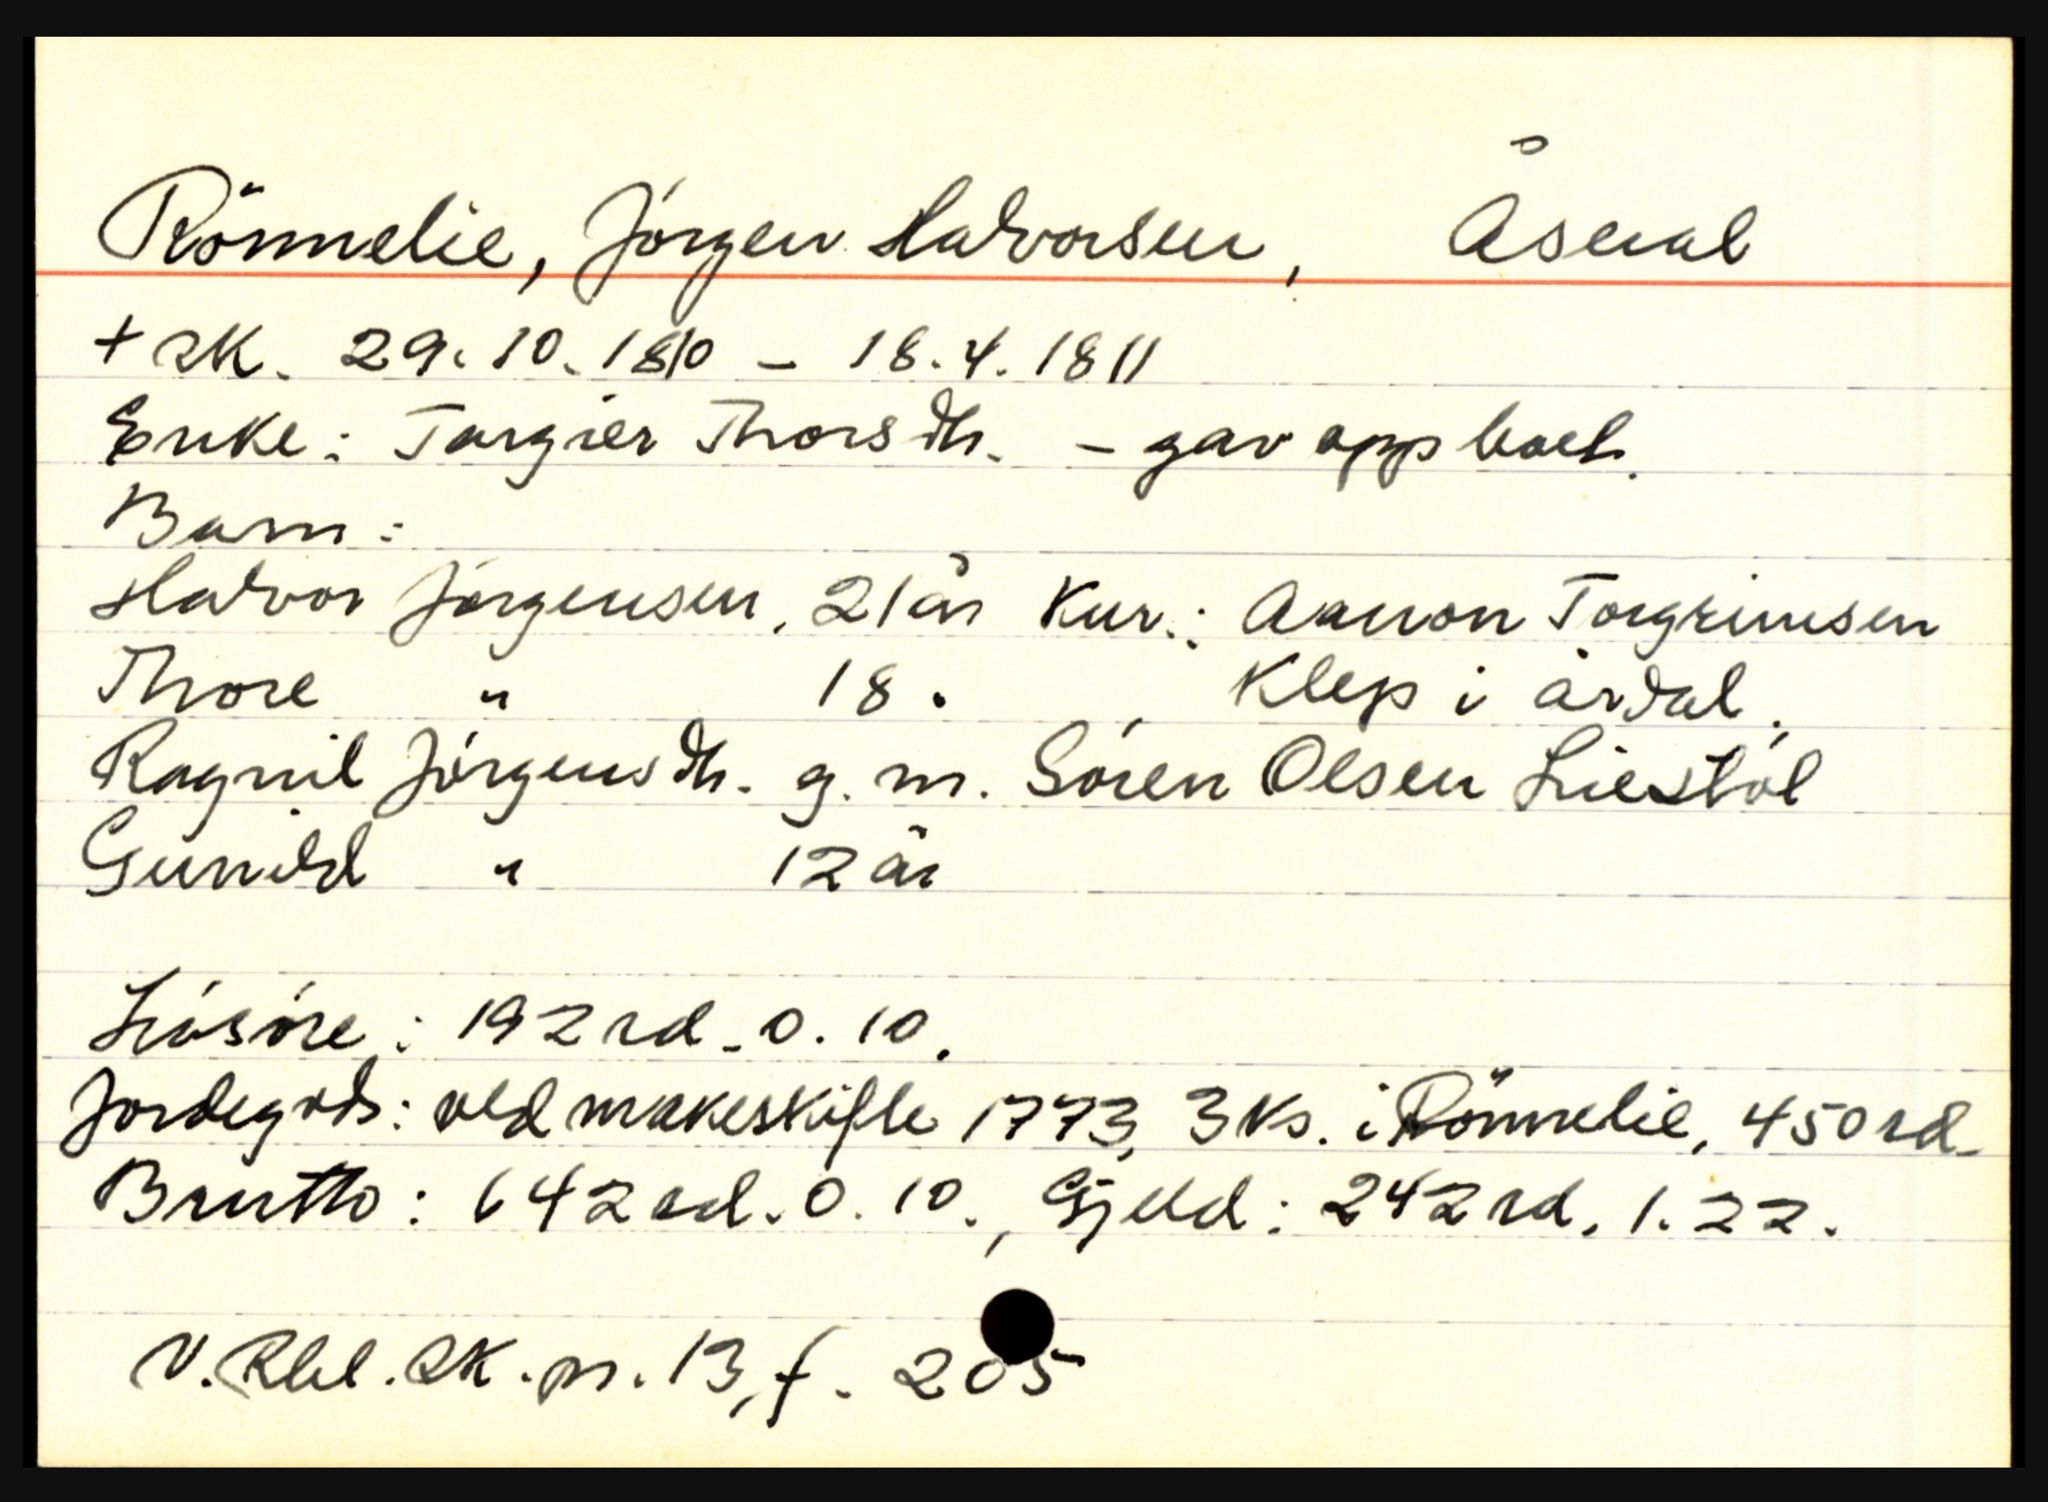 Rönnelie, Jórgen Halvorsen, Åseral
+ sk. 29.10.1810 - 18.4.1811
Enke: Torgier Thorsdtr. - gav opp boet.
Barn:
Halvor Jórgensen, 21 år Kur.: Aanon Torgrimsen
Thore " 18. Klep i årdal.
Ragnil Jórgensdtr. g.m. Sóren Olsen Liestól
Gunild " 12 år
Lósóre: 192 rd. 0. 10.
Jordegods: ved makeskifte 1773, 3 ks. i Rönnelie, 450 rd.
Brutto: 642 rd. 0. 10., Gjeld: 242 rd. 1. 22.
V. Rbl. sk. pr. 13, f. 205